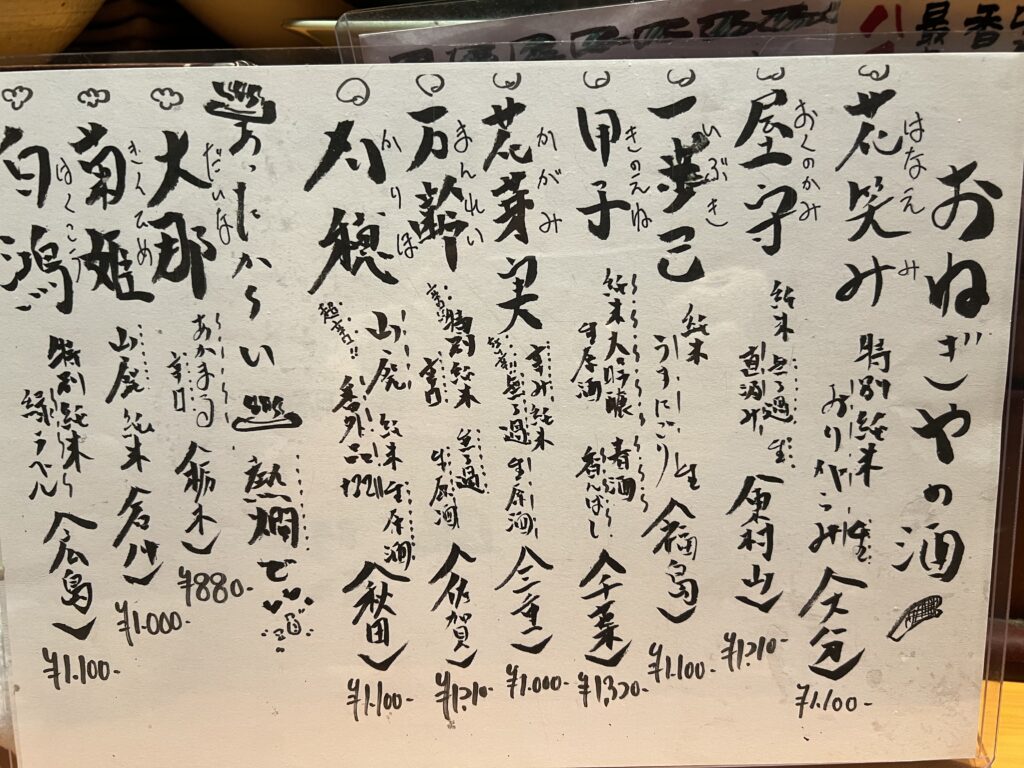 おねぎやの酒
花笑み はなえみ 特別純米 おりがらみ 生 (大分) ¥1.100-
屋守 おくのかみ 純米 無ろ過 生 直汲み (東村山) ¥1.210-
一歩己 いぶき 純米 うすにごり 生 (福島) ¥1.100-
甲子 きのえね 純米大吟醸 春酒 生原酒 香んばし (千葉) ¥1320-
花芽実 かがみ 辛み純米 無ろ過 生原酒 (三重) ¥1.000-
万齢 まんれい 特別純米 無ろ過 辛口 生原酒 (佐賀) ¥1.210-
刈穂 かりほ 超辛口!! 山廃 純米 生原酒 番外品 (秋田) ¥1.100-
あったか〜い 熱燗で
大那 だいな あかまる 辛口 (栃木) ¥880-
菊姫 きくひめ 山廃 純米 (石川) ¥1.000-
白鴻 はくこう 特別純米 緑ラベル (広島) ¥1.100-